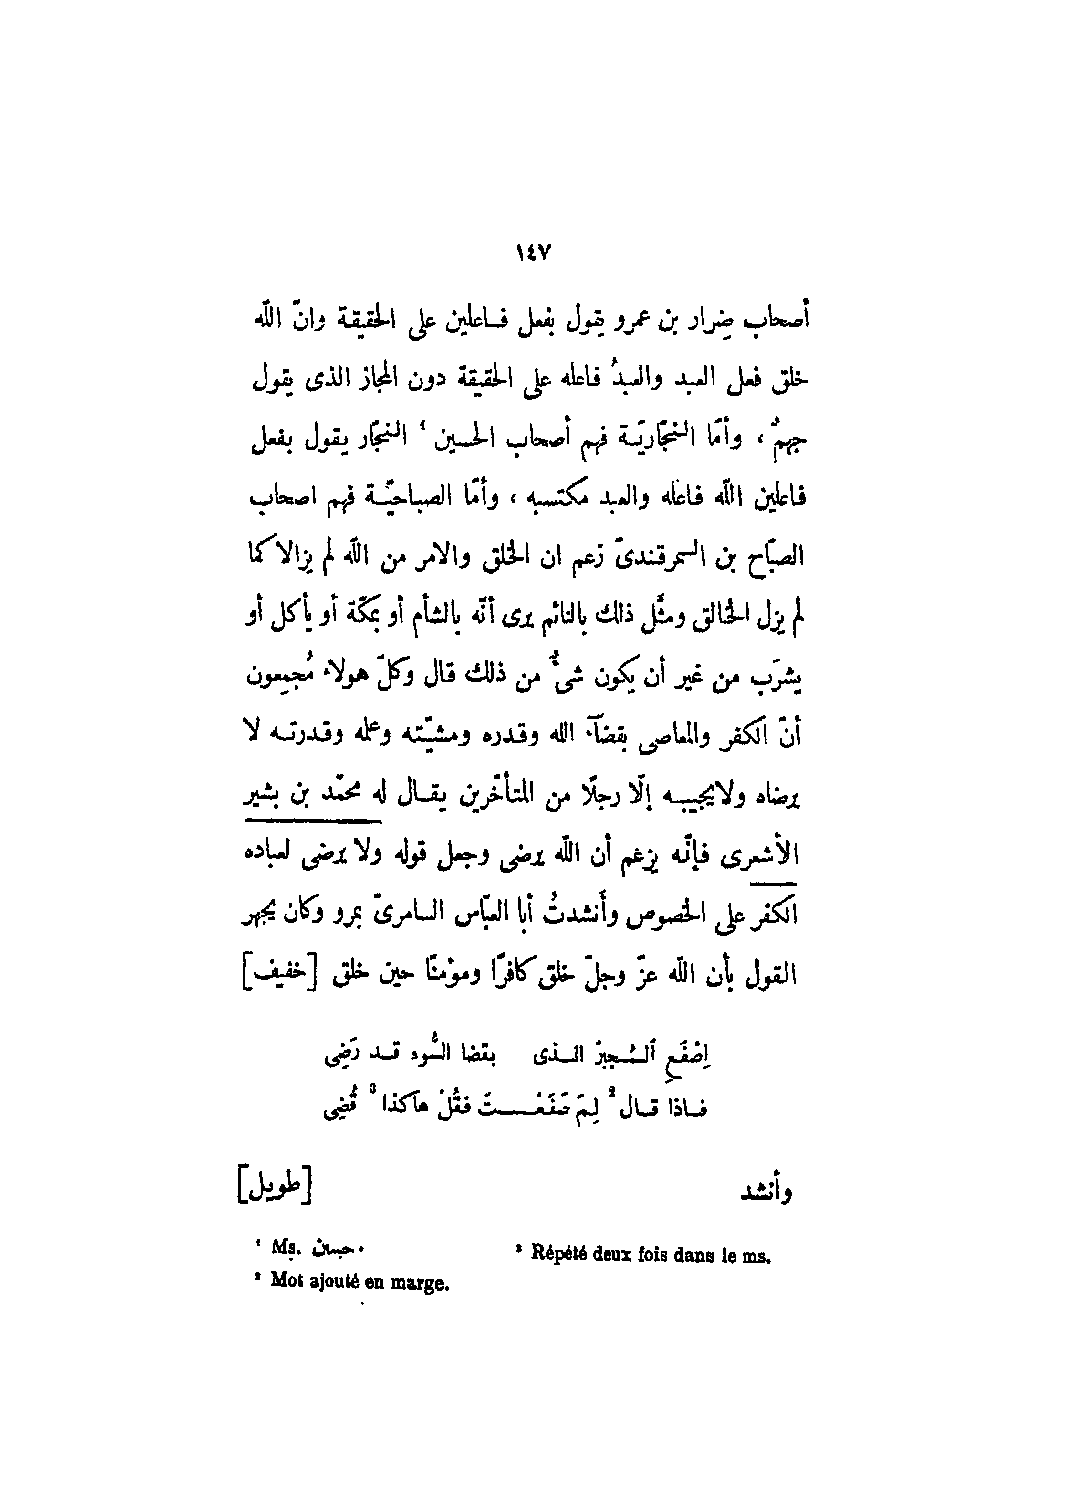 ١٤٧
أصحاب ضِرار بن عمرو يقول بفعل فـاعلين على الحقيقة وانّ اللّه
خلق فعل العبد والعبدُ فاعله على الحقيقة دون المجاز الذى يقول
جهمٌ ، وأمّا النجّاريّة فهم أصحاب الحسين ¹ النجّار يقول بفعل
فاعلين اللّه فاعله والعبد مكتسبه ، وأمّا الصباحيّـة فهم اصحاب
الصبّاح بن السمرقندىّ زعم ان الخلق والامر من اللّه لم يزالا كما
لم يزل الخالق ومثّل ذلك بالنائم يرى أنّه بالشأم أو بمكّة أو يأكل أو
يشرَب من غير أن يكون شىءٌ من ذلك قال وكلّ هولاء مُجمِعون
أنّ الكفر والمعاصى بقضآء الله وقدره ومشيّته وعلمه وقدرتـه لا
يرضاه ولايجيبـه إلّا رجلًا من المتأخّرين يقـال له محمّد بن بشير
الأشعرى فإنّه يزعم أن اللّه يرضى وجعل قوله ولا يرضى لعباده
الكفر على الخصوص وأنشدتُ أبا العبّاس السامرىّ بمرو وكان يجهر
القول بأن اللّه عزّ وجلّ خلق كافرًا ومؤمنًا حين خلق [خفيف]
اِصْفَعِ ٱلـمُجبِرْ الـذى بقضا السُّوء قـد رَضِى
فـاذا قـال ² لِمَ صَفَعْـــتَ فقُلْ هاكذا ³ قُضِى
وأنشد [طويل]
¹ Ms. حسان.
² Répété deux fois dans le ms.
² Mot ajouté en marge.